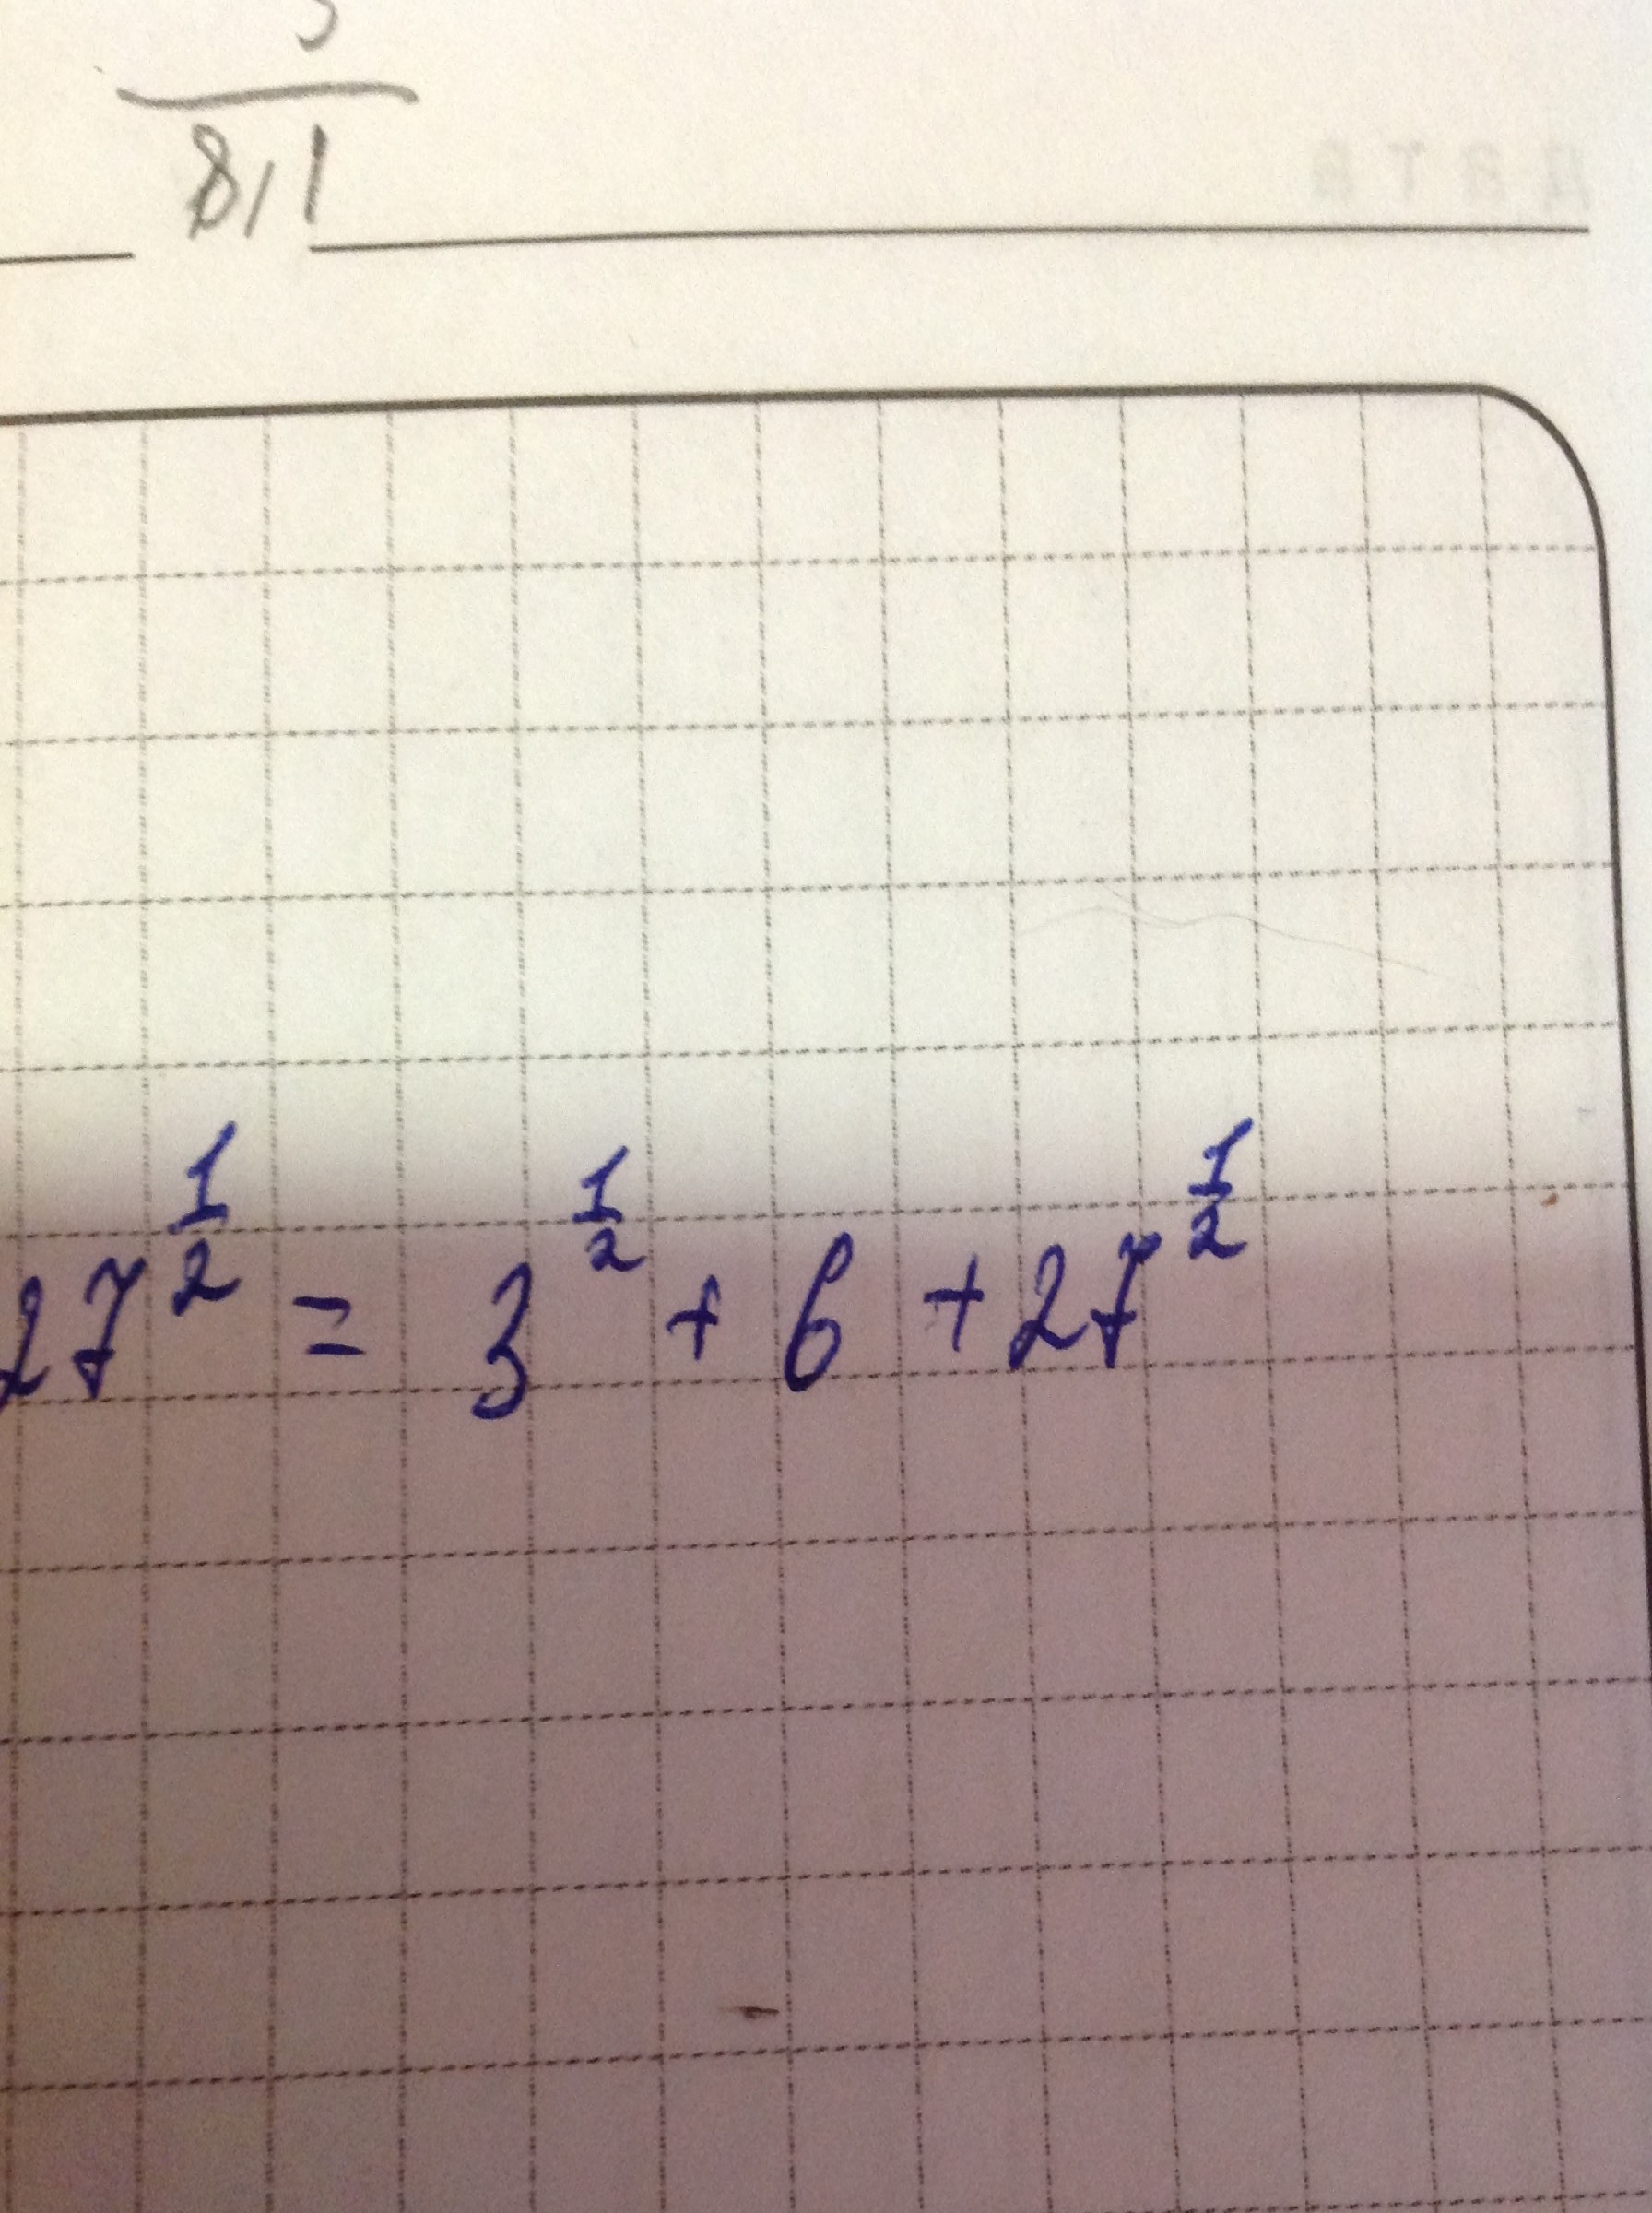 8,1
дата
27^{\frac{1}{2}} = 3^{\frac{1}{2}} + 6 + 27^{\frac{1}{2}}